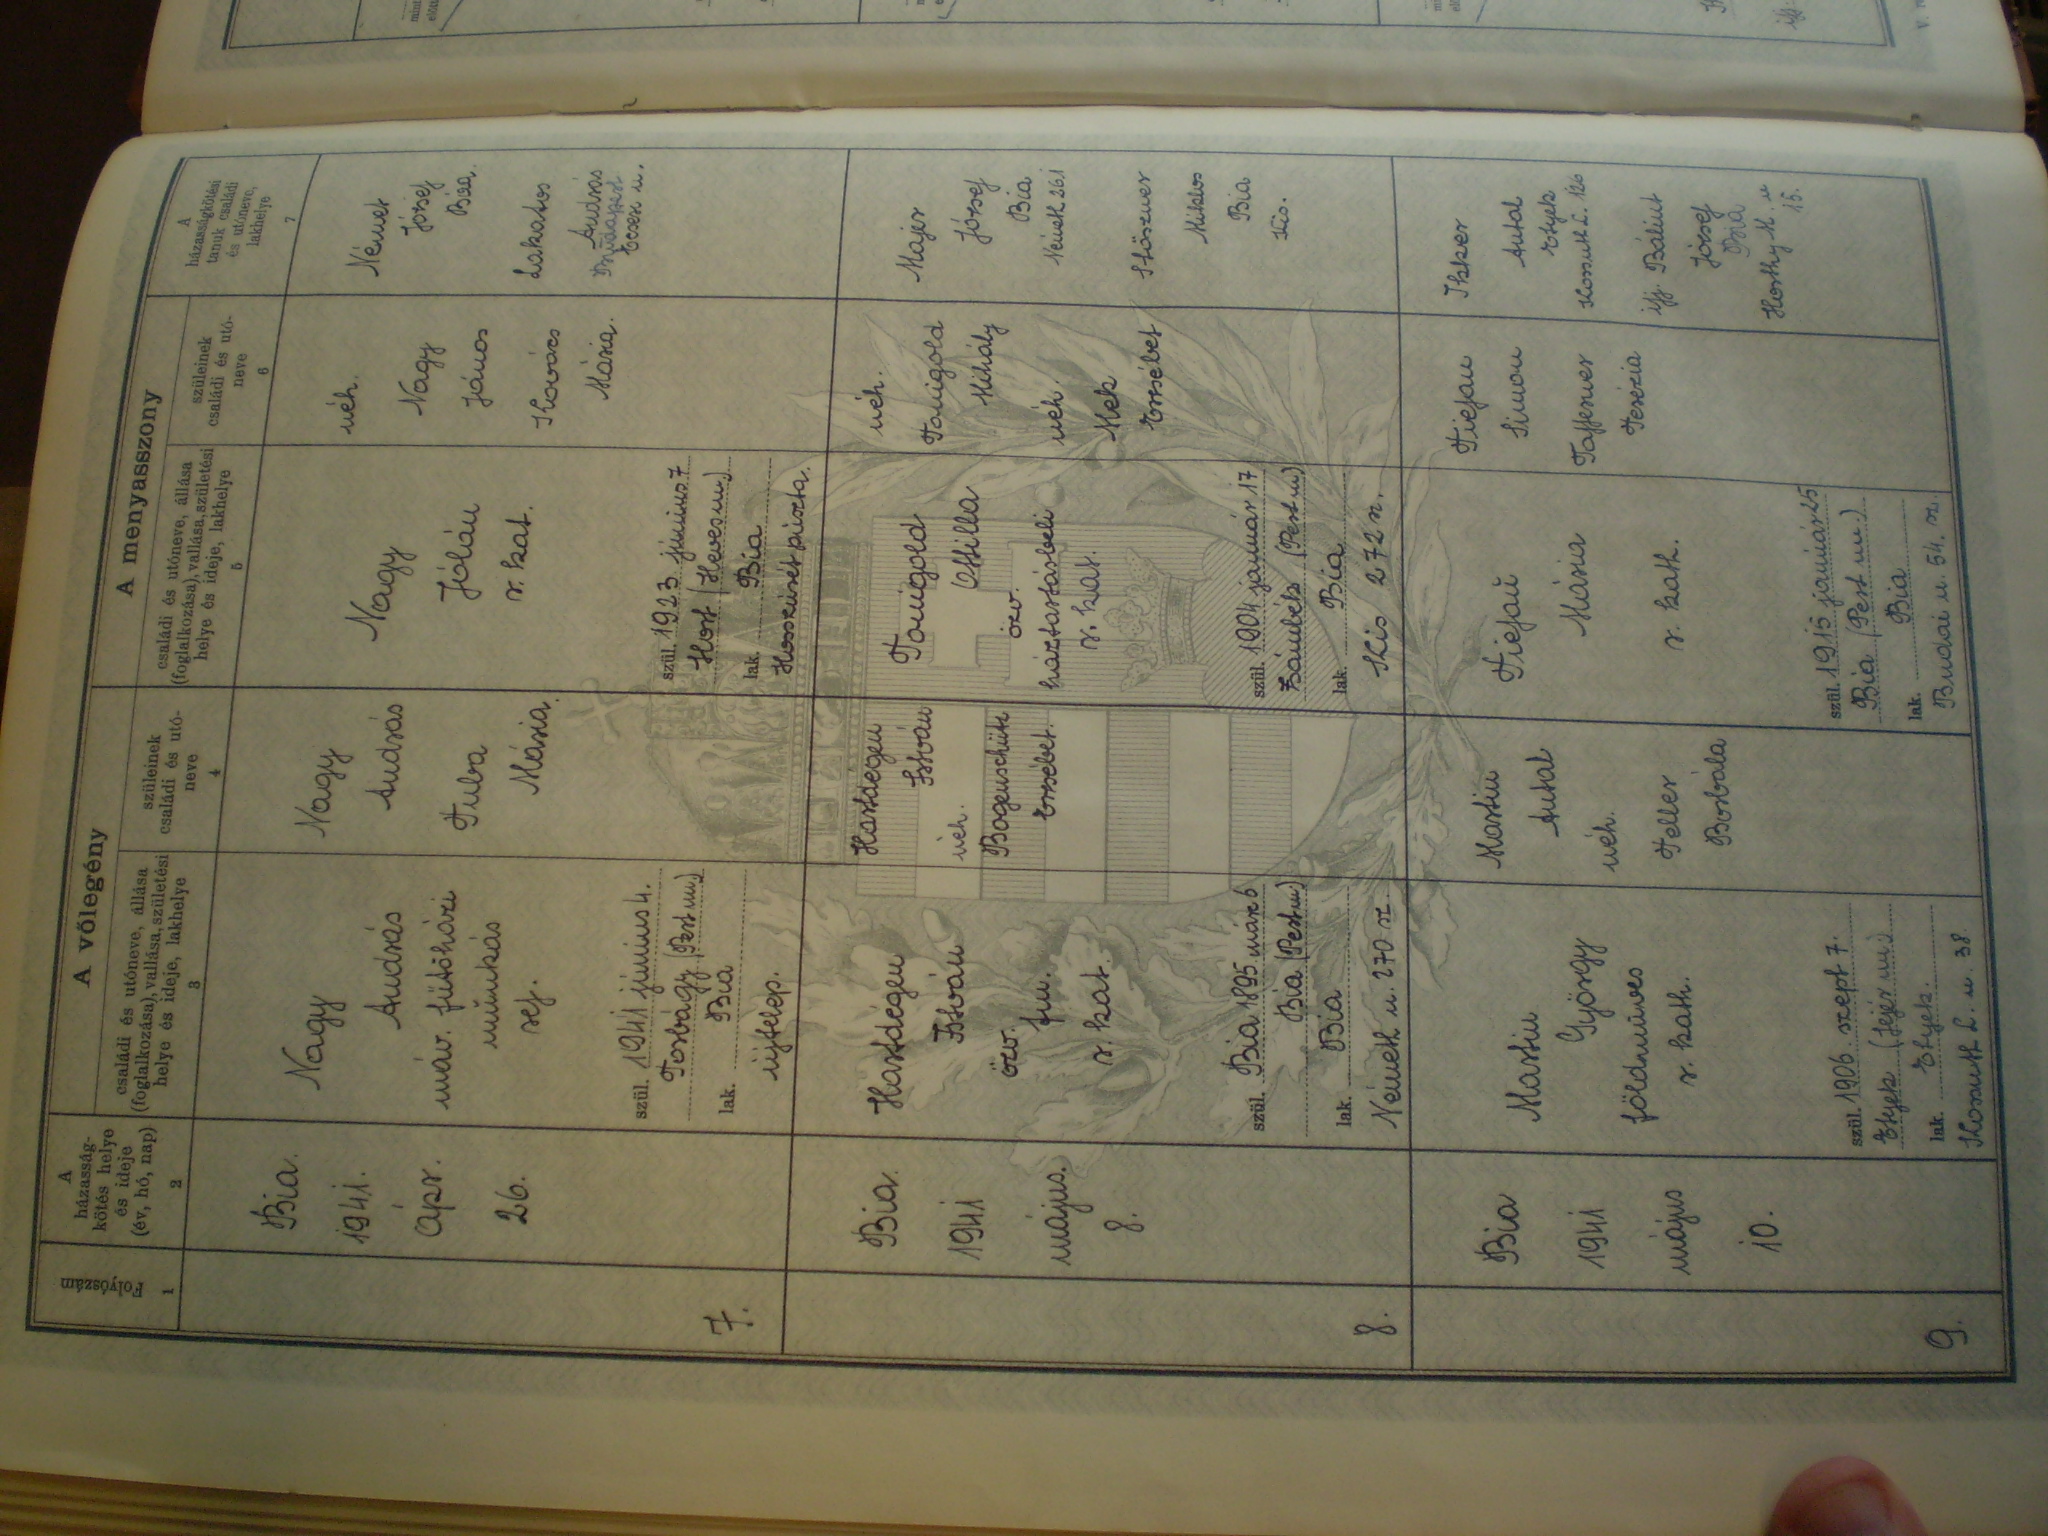 A vőlegény
A menyasszony
Folyószám
1
A
házasság-
kötés helye
és ideje
(év, hó, nap)
2
családi és utóneve, állása
(foglalkozása), vallása, születési
helye és ideje, lakhelye
3
szüleinek
családi és utó-
neve
4
családi és utóneve, állása
(foglalkozása), vallása, születési
helye és ideje, lakhelye
5
szüleinek
családi és utó-
neve
6
A
házasságkötési
tanuk családi
és utóneve,
lakhelye
7
7.
Bia.
1941.
Ápr.
26.
Nagy
András
máv. fűtőházi
munkás
ref.
szül. 1941 június 4.
Torbágy (Pest m.)
lak. Bia
újtelep.
Nagy
András
Tuba
Mária.
Nagy
Jolán
r. kat.
szül. 1923 június 7
Hort (Heves m.)
lak. Bia
Hosszúrét puszta.
néh.
Nagy
János
Kovács
Mária.
Német
József
Bia.
Lakatos
András
Budapest
Ecseri u.
8.
Bia.
1941
május.
8.
Hartdégen
István
özv. fm.
r. kat.
szül. Bia 1895 már 6
Bia (Pest m.)
lak. Bia
Németh u. 270 sz.
Hartdégen
István
néh.
Bogenschütz
Erzsébet.
Tonigold
Ottilia
özv.
háztartásbeli
r. kat.
szül. 1904 január 17
Zsámbék (Pest m.)
lak. Bia
Kis 272 sz.
néh.
Tonigold
Mihály
néh.
Mek
Erzsébet
Majer
József
Bia
Németh 261
Stöszner
Miklós
Bia
Kis.
9.
Bia
1941
május
10.
Martin
György
földmíves
r. kath.
szül. 1906. szept 7.
Etyek (Fejér m.)
lak. Etyek.
Kossuth L. u. 38.
Martin
Antal
néh.
Feller
Borbála
Tiefau
Mária
r. kath.
szül. 1915 január 25
Bia (Pest m.)
lak. Bia
Budai u. 54. sz.
Tiefau
Simon
Taffener
Terézia
Ikker
Antal
Etyek
Kossuth L. 126
ifj. Bálint
József
Bia
Horthy M. u
15.